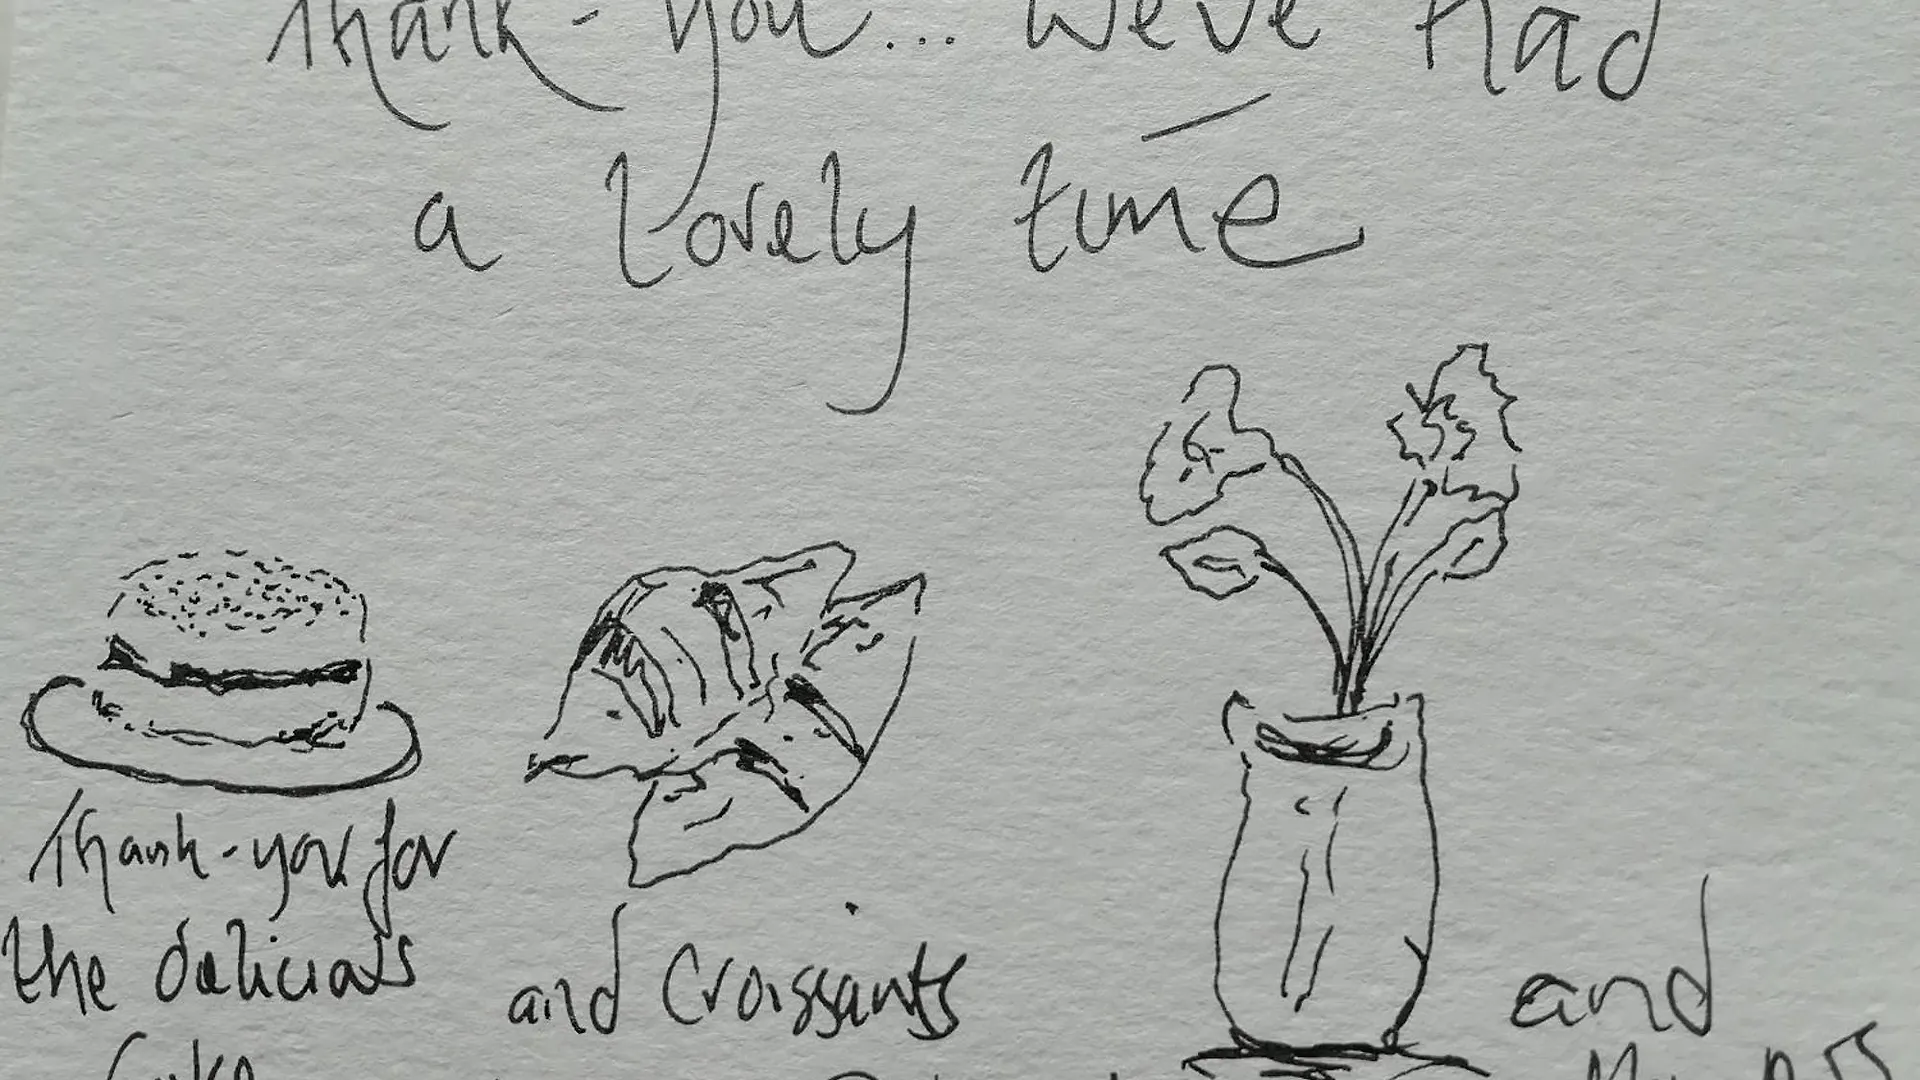 Thank-you... We've had
a lovely time
Thank-you for
the delicious
Cake
and Croissants
and